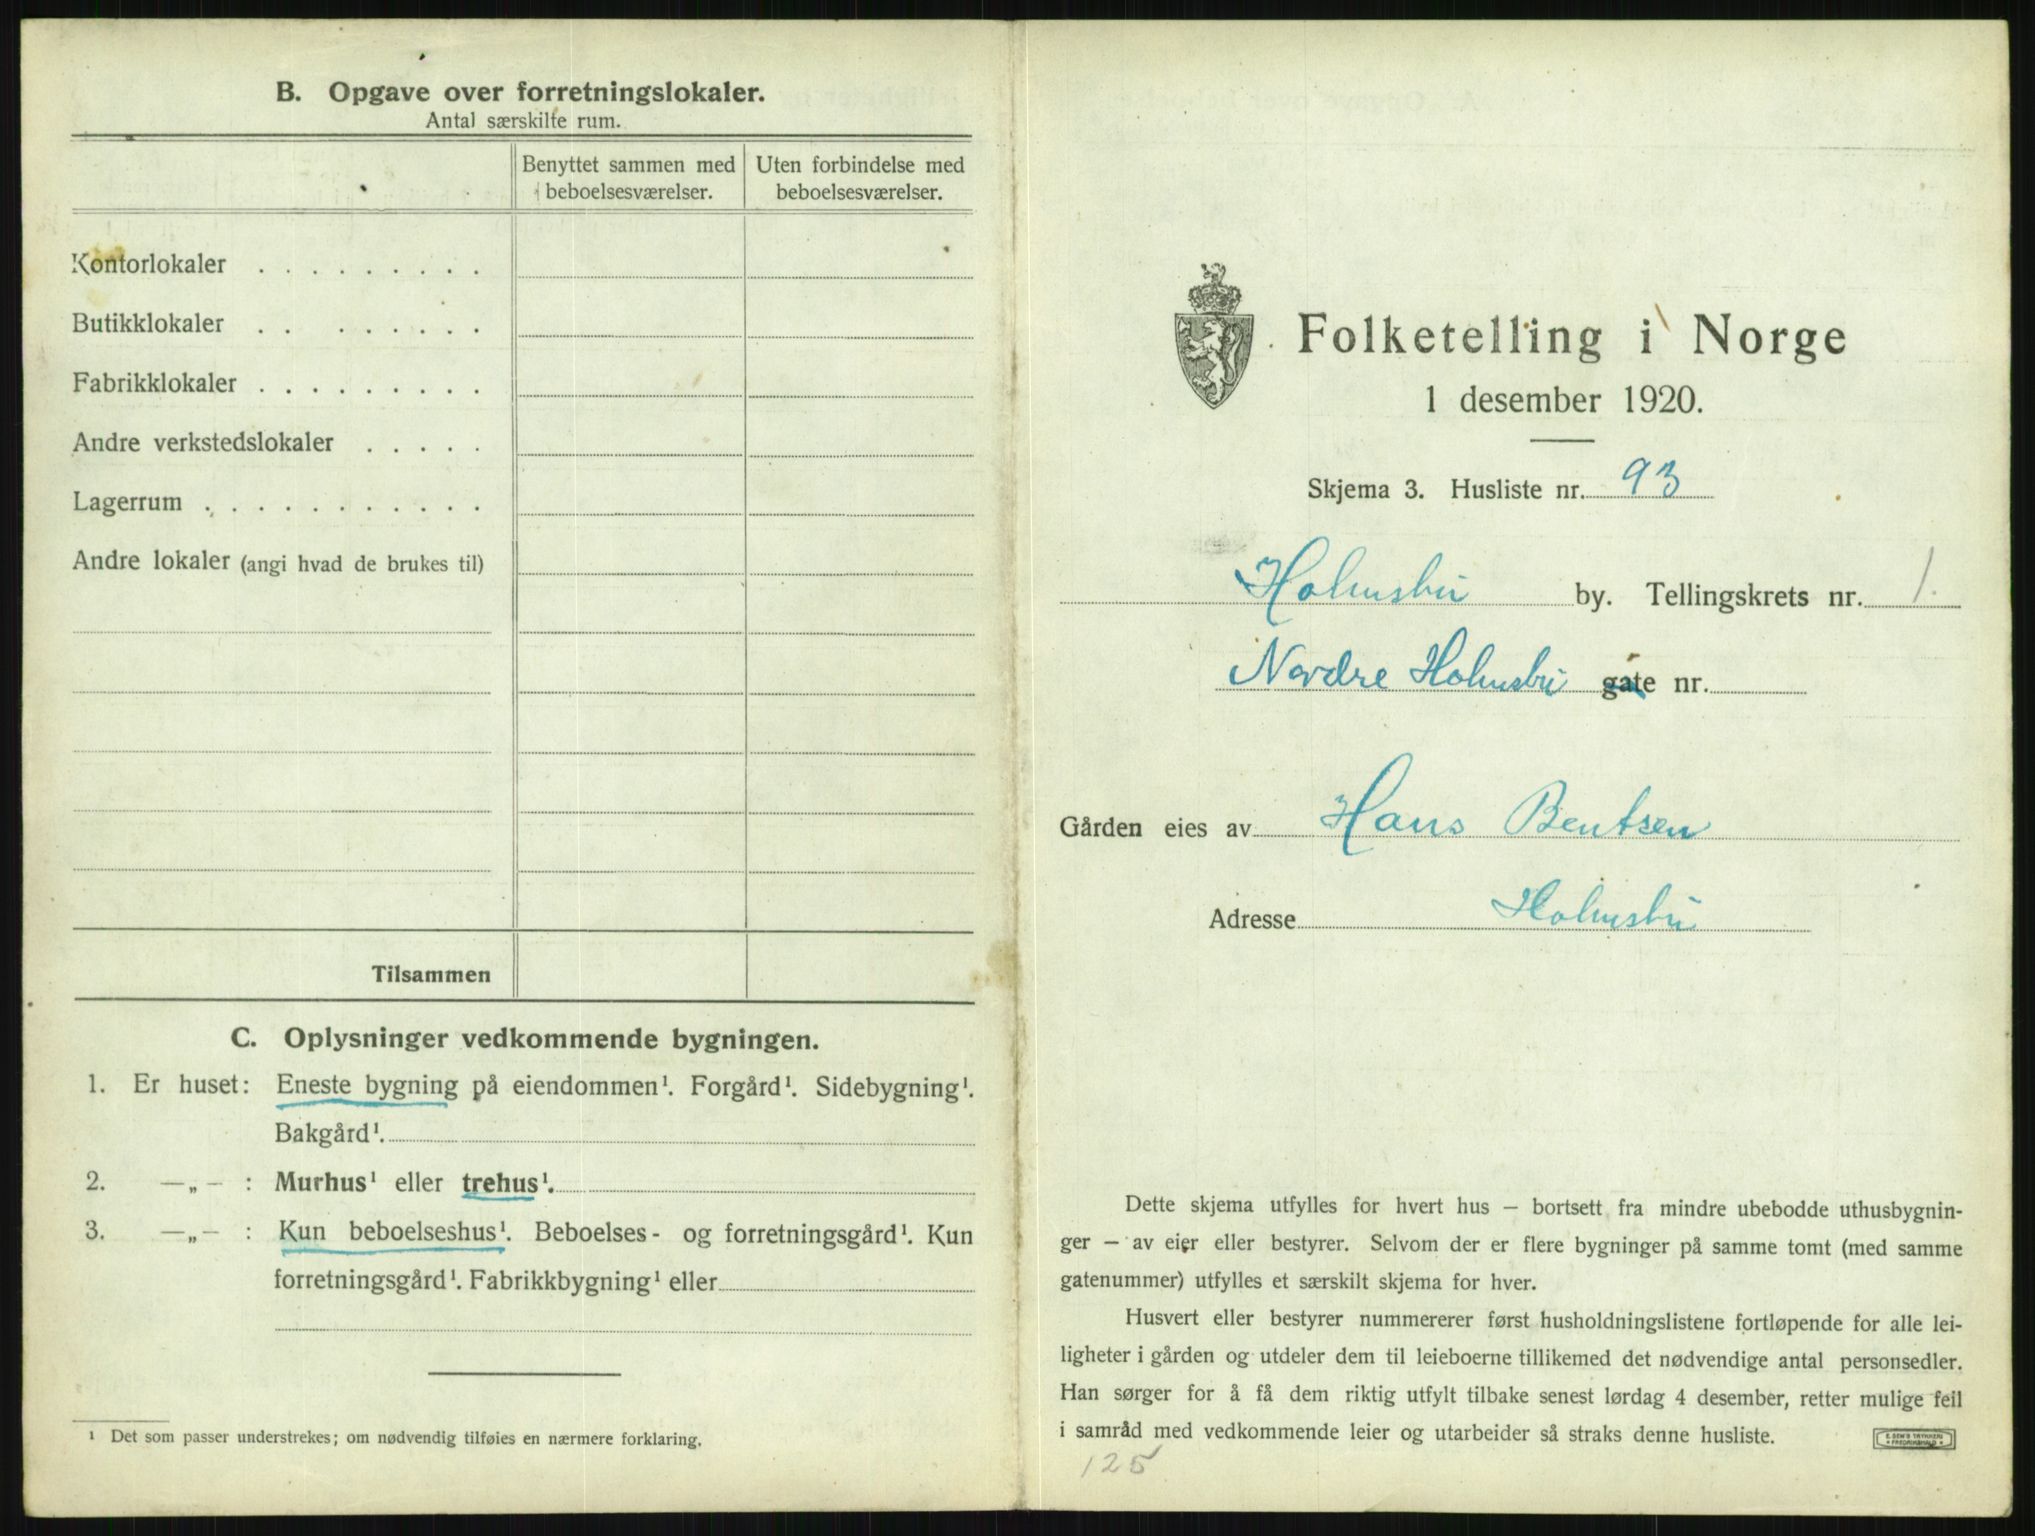 B. Opgave over forretningslokaler.
Antal særskilte rum.
Benyttet sammen med beboelsesværelser.
Uten forbindelse med beboelsesværelser.
Kontorlokaler . . . . . . . . .
Butikklokaler . . . . . . . .
Fabrikklokaler . . . . . . . . .
Andre verkstedslokaler . . . . .
Lagerrum . . . . . . . . . . .
Andre lokaler (angi hvad de brukes til)
Tilsammen
C. Oplysninger vedkommende bygningen.
1. Er huset: Eneste bygning på eiendommen¹. Forgård¹. Sidebygning¹.
Bakgård¹.
2. —„— : Murhus¹ eller trehus¹.
3. —„— : Kun beboelseshus¹. Beboelses- og forretningsgård¹. Kun
forretningsgård¹. Fabrikkbygning¹ eller
¹ Det som passer understrekes; om nødvendig tilføies en nærmere forklaring.
Folketelling i Norge
1 desember 1920.
Skjema 3. Husliste nr. 93
Holmsbu by. Tellingskrets nr. 1.
Nordre Holmsbu gate nr.
Gården eies av Hans Bentsen
Adresse Holmsbu
Dette skjema utfylles for hvert hus — bortsett fra mindre ubebodde uthusbygnin-
ger — av eier eller bestyrer. Selvom der er flere bygninger på samme tomt (med samme
gatenummer) utfylles et særskilt skjema for hver.
Husvert eller bestyrer nummererer først husholdningslistene fortløpende for alle lei-
ligheter i gården og utdeler dem til leieboerne tillikemed det nødvendige antal personsedler.
Han sørger for å få dem riktig utfylt tilbake senest lørdag 4 desember, retter mulige feil
i samråd med vedkommende leier og utarbeider så straks denne husliste.
125